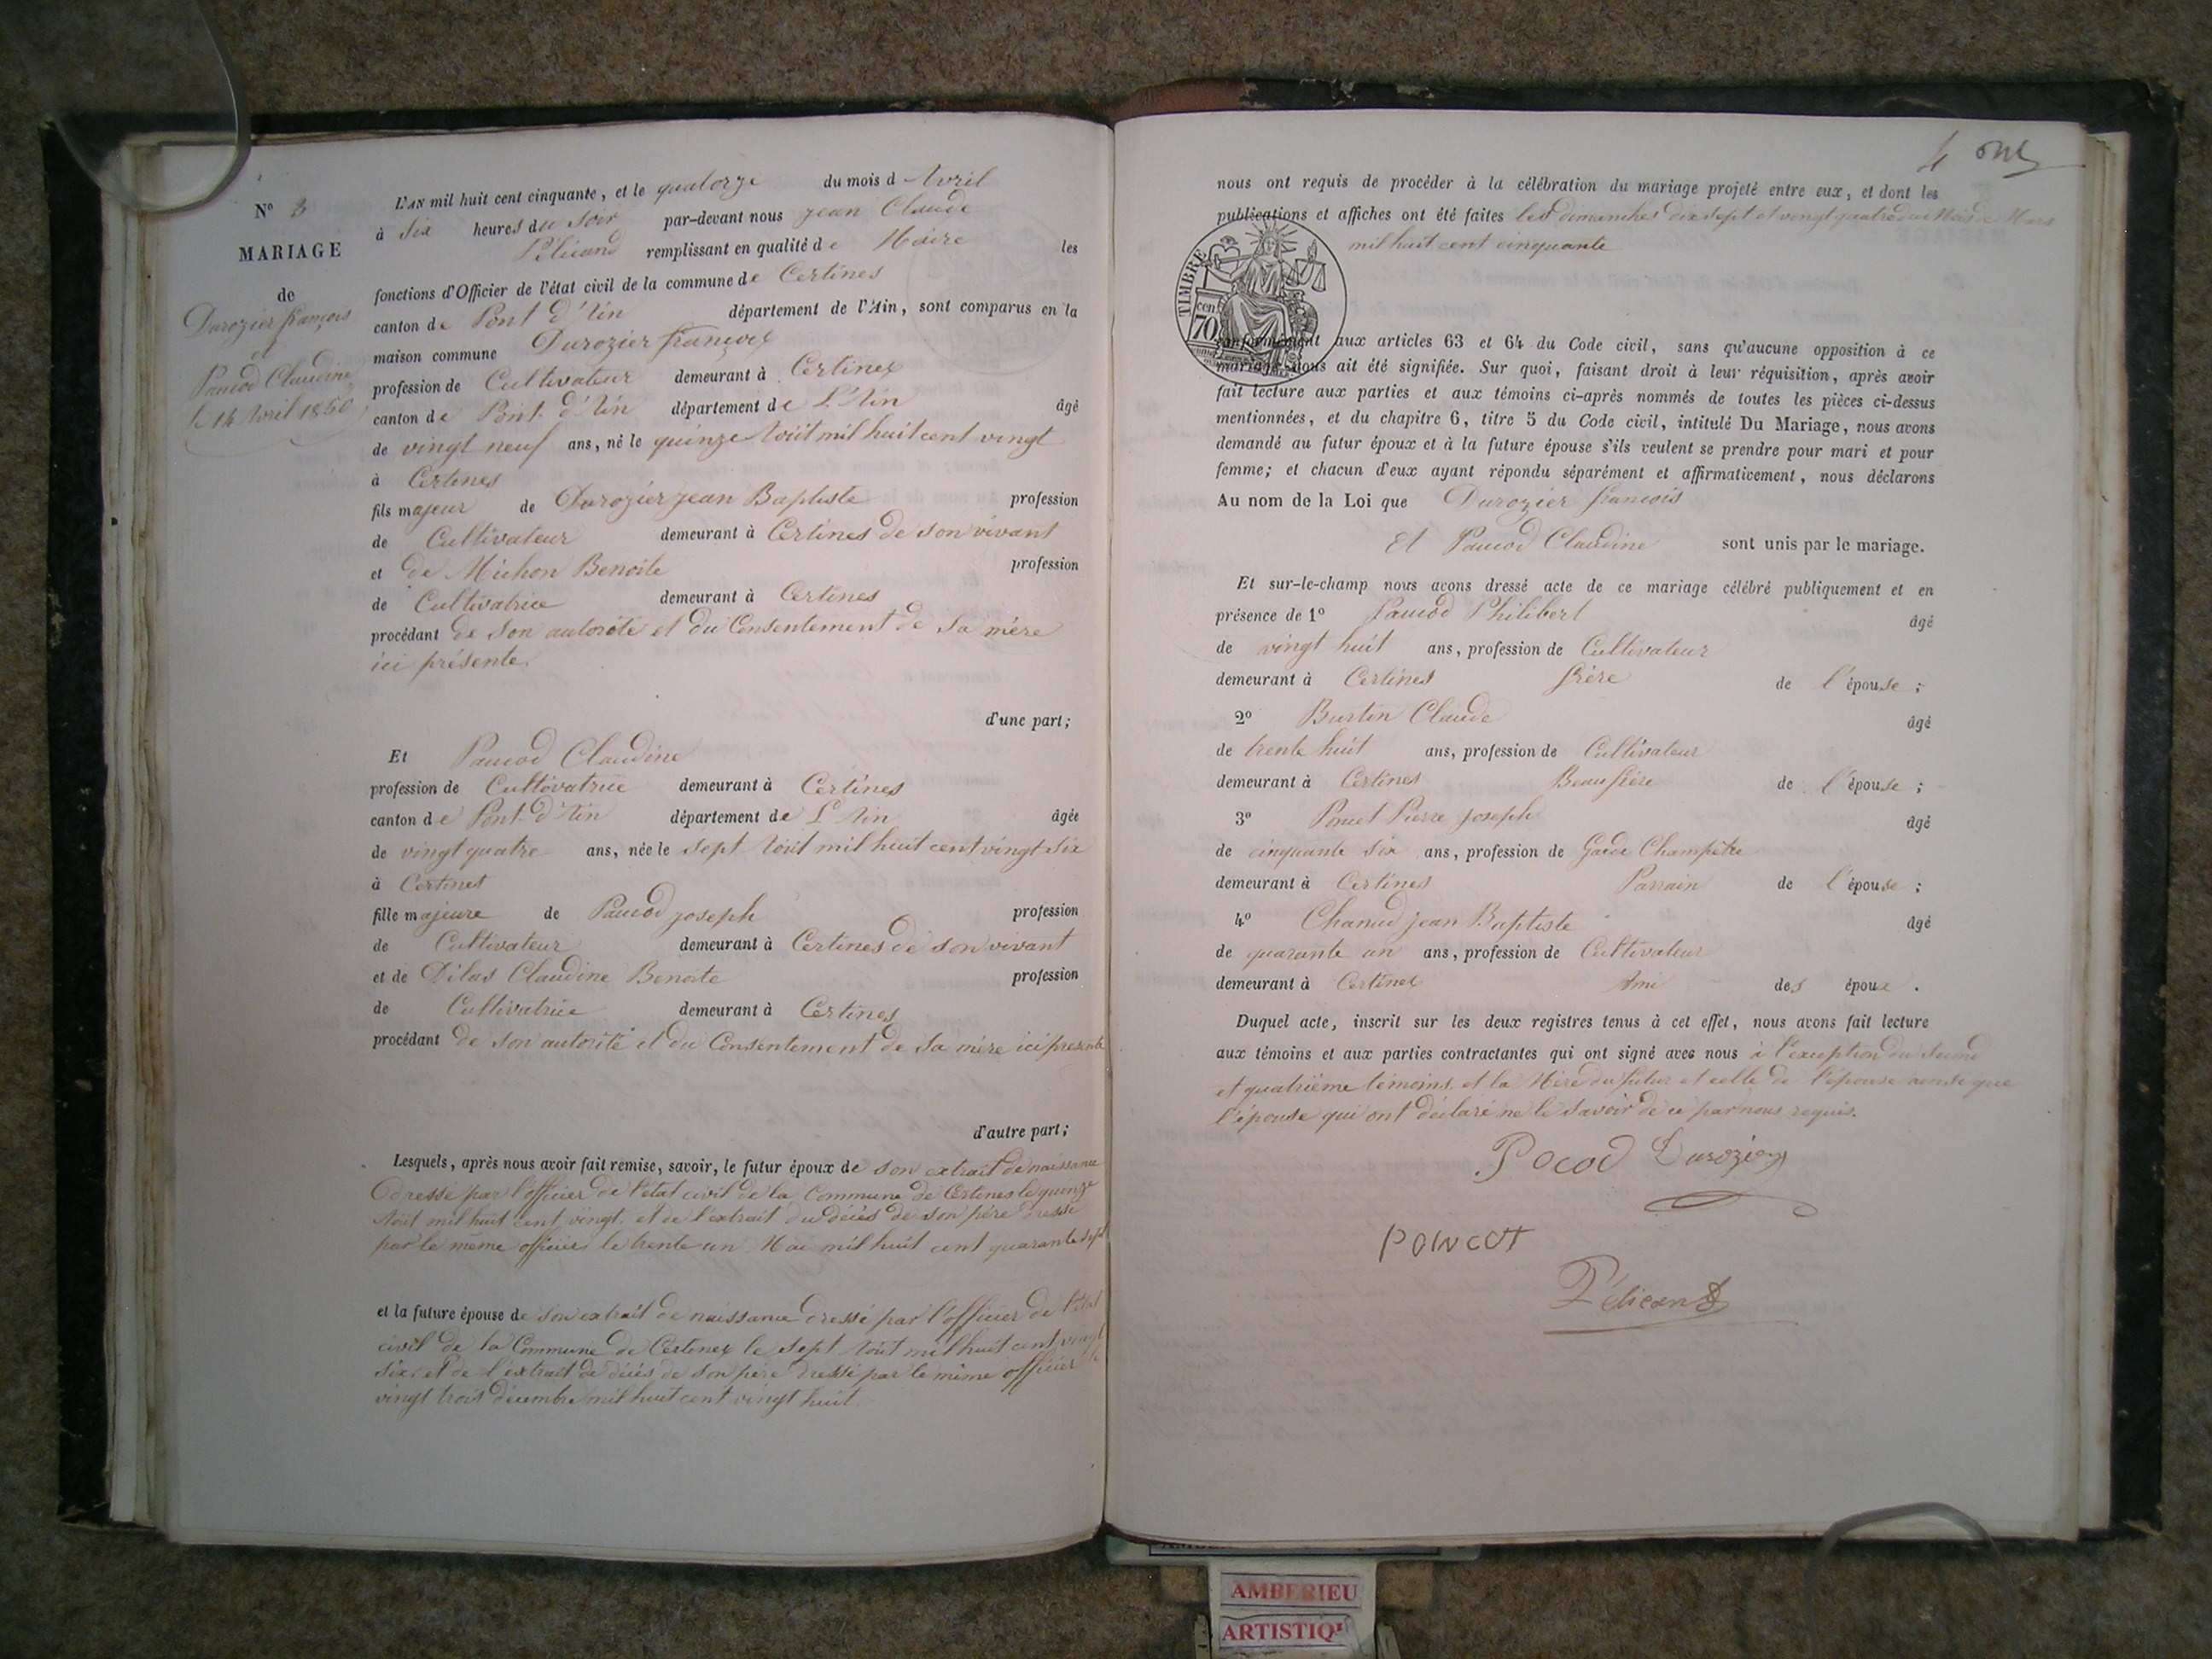 N° 3
MARIAGE
de
Durozier françois
et
Paucod Claudine
le 14 Avril 1850
L'AN mil huit cent cinquante, et le quatorze du mois d Avril
à Six heures du Soir par-devant nous jean Claude
Pélicand remplissant en qualité de Maire les
fonctions d'Officier de l'état civil de la commune de Certines
canton de Pont d'Ain département de l'Ain, sont comparus en la
maison commune Durozier françois
profession de Cultivateur demeurant à Certines
canton de Pont d'Ain département de L'Ain âgé
de vingt neuf ans, né le quinze Août mil huit cent vingt
à Certines
fils majeur de Durozier jean Baptiste profession
de Cultivateur demeurant à Certines de son vivant
et de Michon Benoite profession
de Cultivatrice demeurant à Certines
procédant de Son autorité et du Consentement de Sa mère
ici présente.
d'une part;
Et Paucod Claudine
profession de Cultivatrice demeurant à Certines
canton de Pont d'Ain département de L'Ain âgée
de vingt quatre ans, née le sept Août mil huit cent vingt six
à Certines
fille majeure de Paucod joseph profession
de Cultivateur demeurant à Certines de son vivant
et de Dilas Claudine Benoite profession
de Cultivatrice demeurant à Certines
procédant de Son autorité et du Consentement de Sa mère ici présente
d'autre part;
Lesquels, après nous avoir fait remise, savoir, le futur époux de son extrait de naissance
dressé par l'officier de l'état civil de la Commune de Certines le quinze
Août mil huit cent vingt et de l'extrait du décès de son père dressé
par le même officier le trente un Mai mil huit cent quarante sept
et la future épouse de son extrait de naissance dressé par l'officier de l'état
civil de la Commune de Certines le sept Août mil huit cent vingt
six, et de l'extrait de décès de son père dressé par le même officier le
vingt trois décembre mil huit cent vingt huit.
4 
nous ont requis de procéder à la célébration du mariage projeté entre eux, et dont les
publications et affiches ont été faites les dimanches dix sept et vingt quatre du Mois de Mars
mil huit cent cinquante
TIMBRE
cen
70
conformément aux articles 63 et 64 du Code civil, sans qu'aucune opposition à ce
mariage nous ait été signifiée. Sur quoi, faisant droit à leur réquisition, après avoir
fait lecture aux parties et aux témoins ci-après nommés de toutes les pièces ci-dessus
mentionnées, et du chapitre 6, titre 5 du Code civil, intitulé Du Mariage, nous avons
demandé au futur époux et à la future épouse s'ils veulent se prendre pour mari et pour
femme; et chacun d'eux ayant répondu séparément et affirmativement, nous déclarons
Au nom de la Loi que Durozier françois
Et Paucod Claudine sont unis par le mariage.
Et sur-le-champ nous avons dressé acte de ce mariage célébré publiquement et en
présence de 1° Paucod Philibert âgé
de vingt huit ans, profession de Cultivateur
demeurant à Certines frère de l'épouse;
2° Burtin Claude âgé
de trente huit ans, profession de Cultivateur
demeurant à Certines Beaufrère de l'épouse;
3° Poncet Pierre joseph âgé
de cinquante six ans, profession de Garde Champêtre
demeurant à Certines Parrain de l'épouse;
4° Chanud jean Baptiste âgé
de quarante un ans, profession de Cultivateur
demeurant à Certines Ami des époux.
Duquel acte, inscrit sur les deux registres tenus à cet effet, nous avons fait lecture
aux témoins et aux parties contractantes qui ont signé avec nous à l'exception du Second
et quatrième témoins, et la Mère du futur et celle de l'épouse ainsi que
l'épouse qui ont déclaré ne le Savoir de ce par nous requis.
Pocod Durozier
PONCET
Pélicand
AMBERIEU
ARTISTIQ